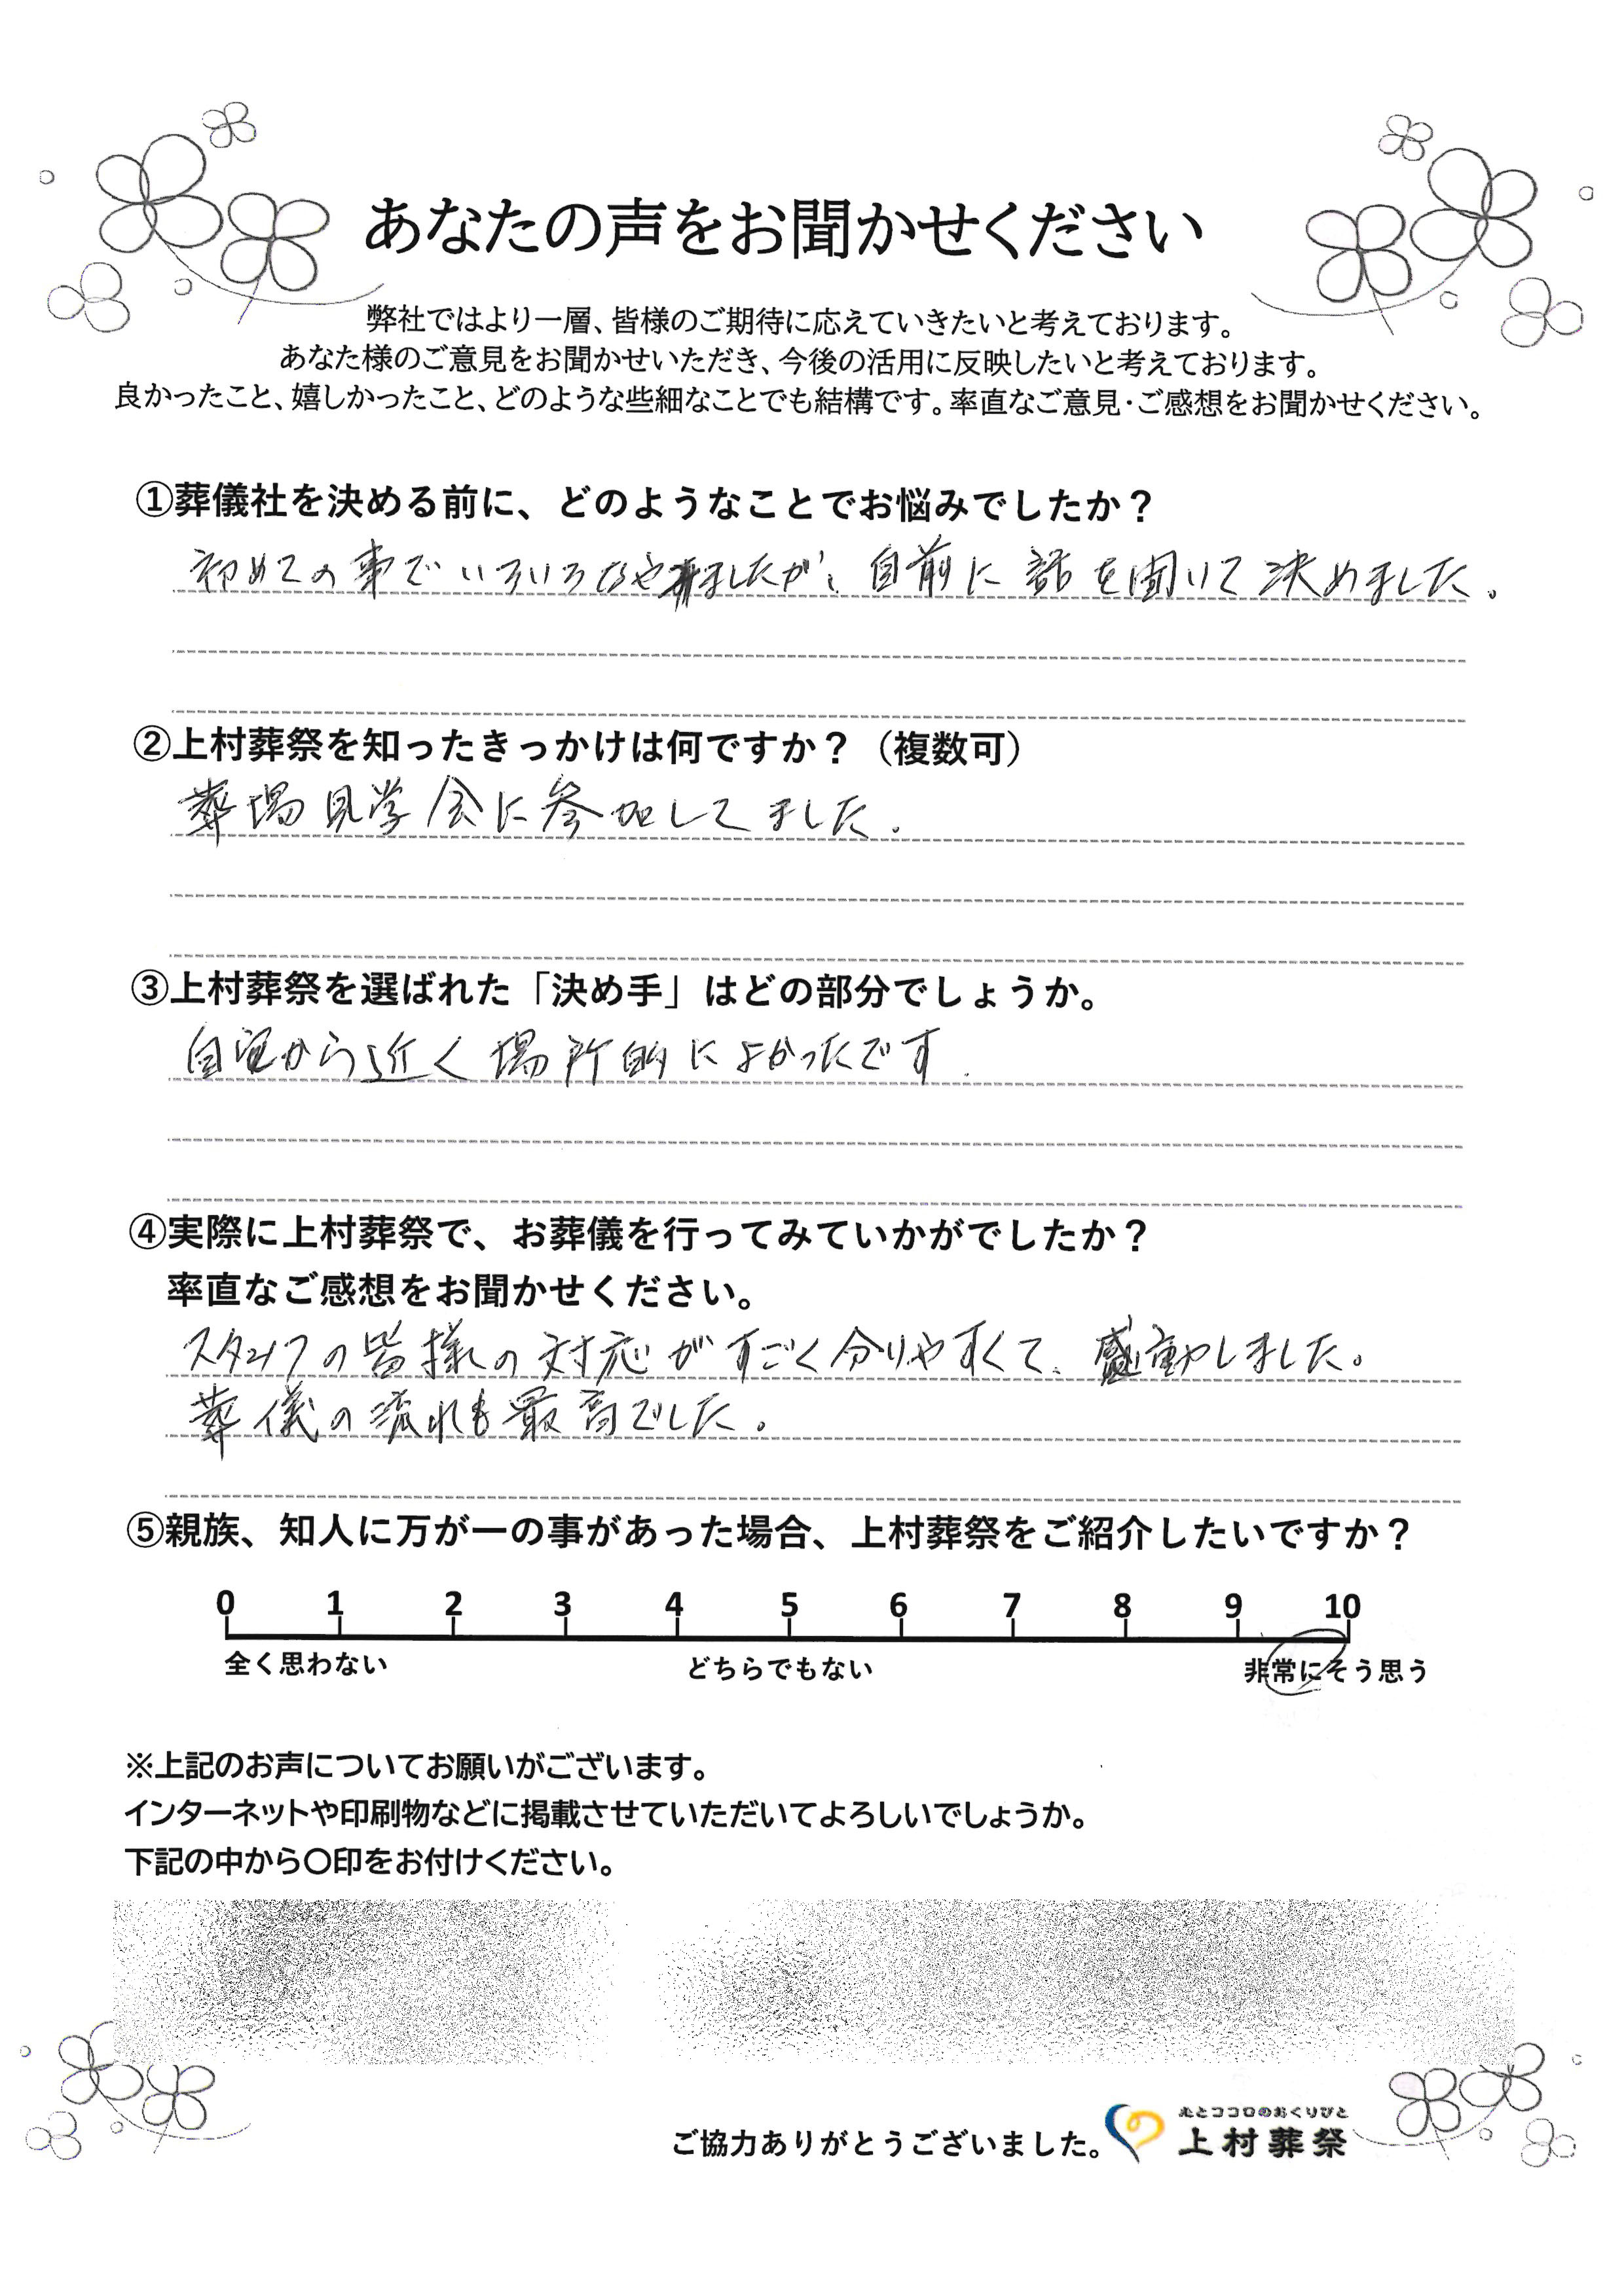 あなたの声をお聞かせください
弊社ではより一層、皆様のご期待に応えていきたいと考えております。
あなた様のご意見をお聞かせいただき、今後の活用に反映したいと考えております。
良かったこと、嬉しかったこと、どのような些細なことでも結構です。率直なご意見・ご感想をお聞かせください。
①葬儀社を決める前に、どのようなことでお悩みでしたか？
初めての事でいろいろなやみましたが、自前に話を聞いて決めました。
②上村葬祭を知ったきっかけは何ですか？（複数可）
葬場見学会に参加してました。
③上村葬祭を選ばれた「決め手」はどの部分でしょうか。
自宅から近く場所的によかったです.
④実際に上村葬祭で、お葬儀を行ってみていかがでしたか？
率直なご感想をお聞かせください。
スタッフの皆様の対応がすごく分りやすくて、感動しました。
葬儀の流れも最高でした。
⑤親族、知人に万が一の事があった場合、上村葬祭をご紹介したいですか？
0 1 2 3 4 5 6 7 8 9 10
全く思わない どちらでもない 非常にそう思う
※上記のお声についてお願いがございます。
インターネットや印刷物などに掲載させていただいてよろしいでしょうか。
下記の中から〇印をお付けください。
心とココロのおくりびと
ご協力ありがとうございました。上村葬祭